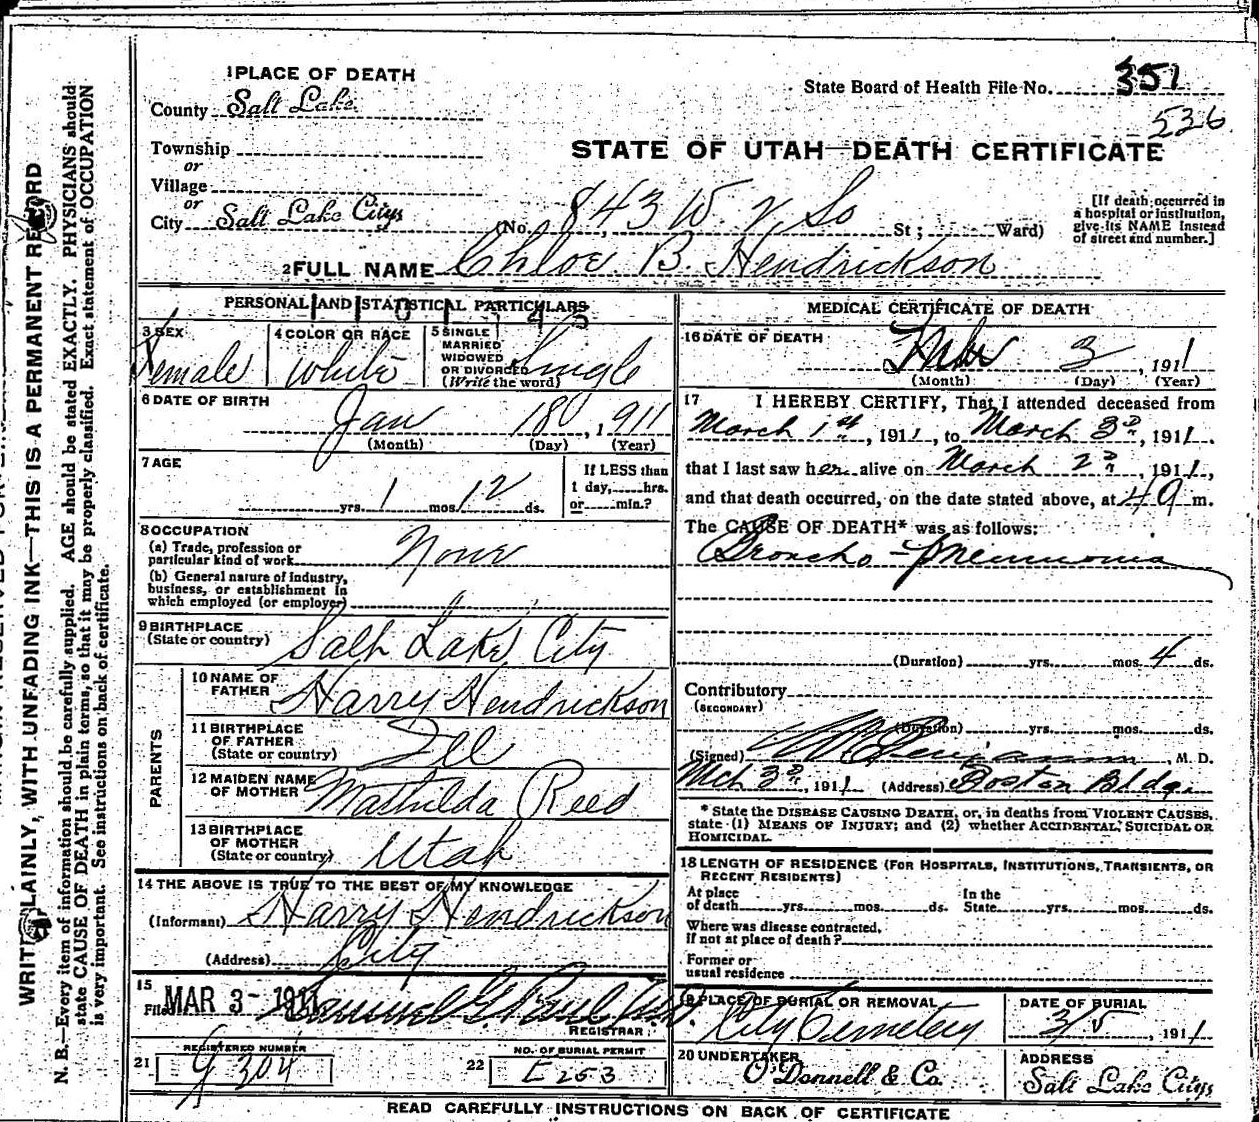 1 PLACE OF DEATH
County Salt Lake
State Board of Health File No. 351
536
Township
or
Village
or
City Salt Lake City
STATE OF UTAH—DEATH CERTIFICATE
(No. 843 W 2, So St; Ward)
[If death occurred in a hospital or institution, give its NAME instead of street and number.]
2 FULL NAME Chloe B. Hendrickson
PERSONAL AND STATISTICAL PARTICULARS
3 SEX Female
4 COLOR OR RACE White
5 SINGLE MARRIED WIDOWED OR DIVORCED (Write the word) Single
6 DATE OF BIRTH Jan 18, 1911
(Month) (Day) (Year)
7 AGE
yrs. 1 mos. 12 ds.
If LESS than 1 day, hrs. or min.?
8 OCCUPATION
(a) Trade, profession or particular kind of work None
(b) General nature of industry, business, or establishment in which employed (or employer)
9 BIRTHPLACE (State or country) Salt Lake City
PARENTS
10 NAME OF FATHER Harry Hendrickson
11 BIRTHPLACE OF FATHER (State or country) Ill
12 MAIDEN NAME OF MOTHER Mathilda Reed
13 BIRTHPLACE OF MOTHER (State or country) Utah
14 THE ABOVE IS TRUE TO THE BEST OF MY KNOWLEDGE
(Informant) Harry Hendrickson
(Address) City
15
Filed MAR 3-1911 Samuel G. Paul M.D.
REGISTRAR
21 REGISTERED NUMBER G 304
22 NO. OF BURIAL PERMIT E 253
MEDICAL CERTIFICATE OF DEATH
16 DATE OF DEATH 3, 1911
(Month) (Day) (Year)
17 I HEREBY CERTIFY, That I attended deceased from
March 1st, 1911, to March 3d, 1911.
that I last saw her alive on March 2d, 1911,
and that death occurred, on the date stated above, at 4 a m.
The CAUSE OF DEATH* was as follows:
Broncho-Pneumonia
(Duration) yrs. mos. 4 ds.
Contributory
(SECONDARY)
(Duration) yrs. mos. ds.
(Signed) , M. D.
Mch 3d, 1911 (Address) Boston Bldg.
* State the DISEASE CAUSING DEATH, or, in deaths from VIOLENT CAUSES, state (1) MEANS OF INJURY; and (2) whether ACCIDENTAL, SUICIDAL OR HOMICIDAL.
18 LENGTH OF RESIDENCE (FOR HOSPITALS, INSTITUTIONS, TRANSIENTS, OR RECENT RESIDENTS)
At place of death yrs. mos. ds. In the State yrs. mos. ds.
Where was disease contracted, if not at place of death?
Former or usual residence
19 PLACE OF BURIAL OR REMOVAL City Cemetery
DATE OF BURIAL 3/5, 1911
20 UNDERTAKER O'Donnell & Co.
ADDRESS Salt Lake City
READ CAREFULLY INSTRUCTIONS ON BACK OF CERTIFICATE
WRITE PLAINLY, WITH UNFADING INK—THIS IS A PERMANENT RECORD
N. B.—Every item of information should be carefully supplied. AGE should be stated EXACTLY. PHYSICIANS should
state CAUSE OF DEATH in plain terms, so that it may be properly classified. Exact statement of OCCUPATION
is very important. See instructions on back of certificate.